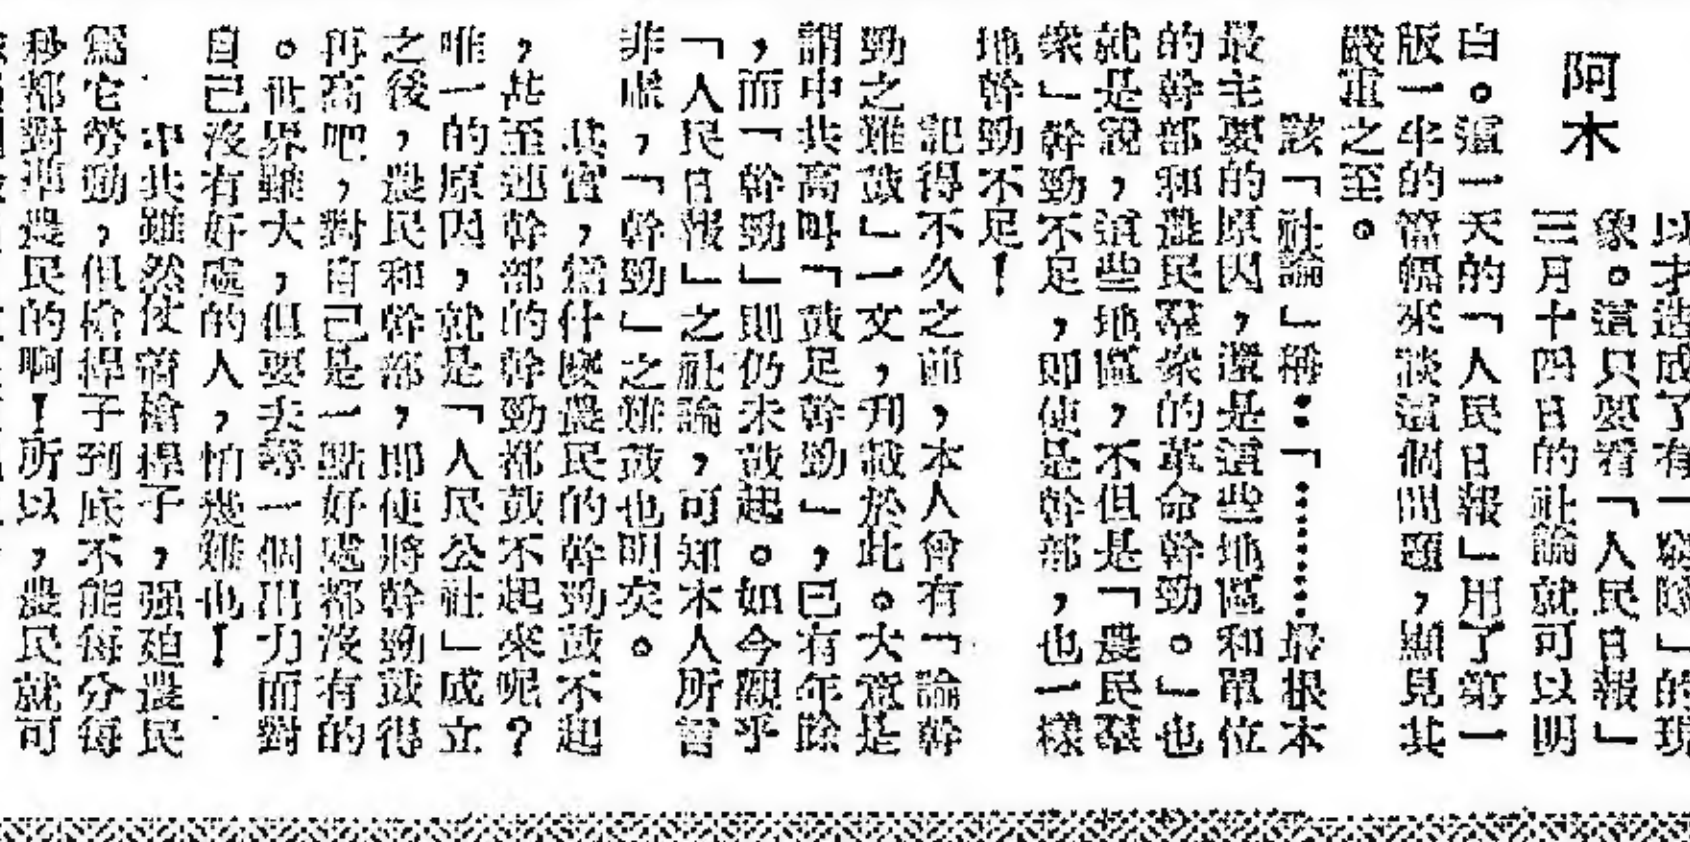 以才造成了有一窮隊」的現
象。這只要看「人民日報」
三月十四日的社論就可以明
阿木
白。這一天的「人民日報」用了第一
版一半的篇幅來談這個問題,顯見其
嚴重之至。
該「社論」稱:「………最根本
最主要的原因,還是這些地區和單位
的幹部和農民羣衆的革命幹勁。」也
就是說,這些地區,不但是「農民羣
衆」幹勁不足,即使是幹部,也一樣
地幹勁不足!
記得不久之前,本人曾有「論幹
勁之難鼓」一文,刋載於此。大意是
謂中共高叫「鼓足幹勁」,已有年餘
,而「幹勁」則仍未鼓起。如今觀乎
「人民日報」之社論,可知本人所言
非虛,「幹勁」之難鼓也明矣。
其實,爲什麽農民的幹勁鼓不起
,甚至連幹部的幹勁都鼓不起來呢?
唯一的原因,就是「人民公社」成立
之後,農民和幹部,即使將幹勁鼓得
再高吧,對自己是一點好處都沒有的
。世界雖大,但要去尋一個出力而對
自己沒有好處的人,怕幾難也!
中共雖然使着槍桿子,强廹農民
爲它勞動,但槍桿子到底不能每分每
秒都對準農民的啊!所以,農民就可